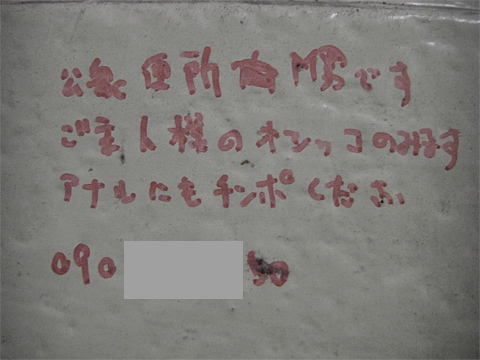 公衆便所専門男です
ご主人様のオシッコのみます
アナルにもチンポください
090 50